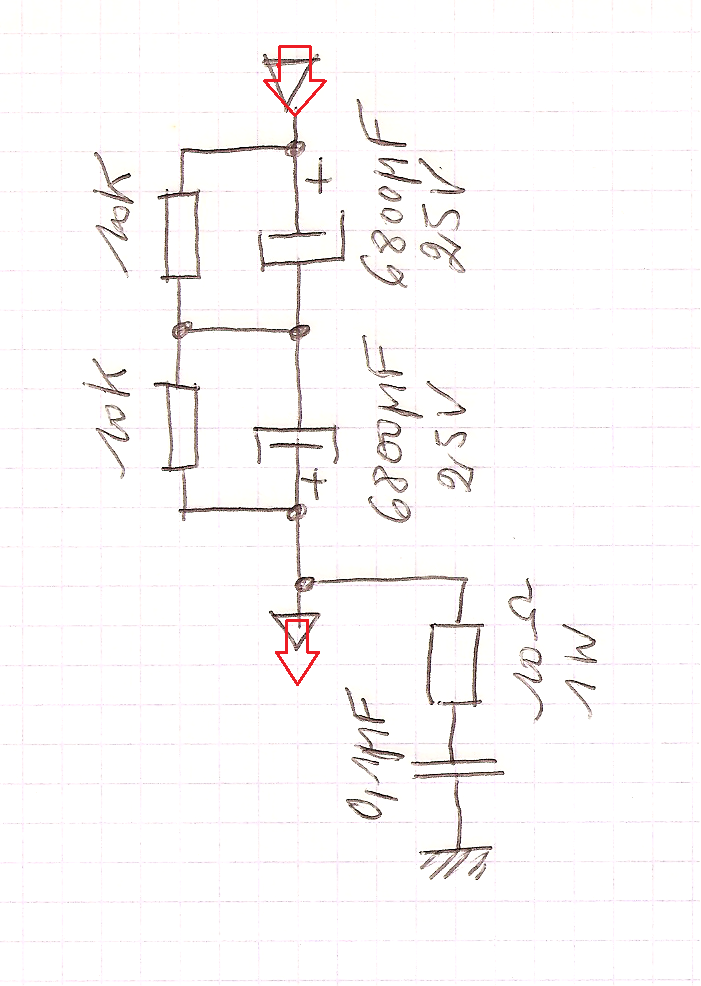 10K
+
6800µF
25V
10K
6800µF
25V
+
10Ω
1W
0,1µF